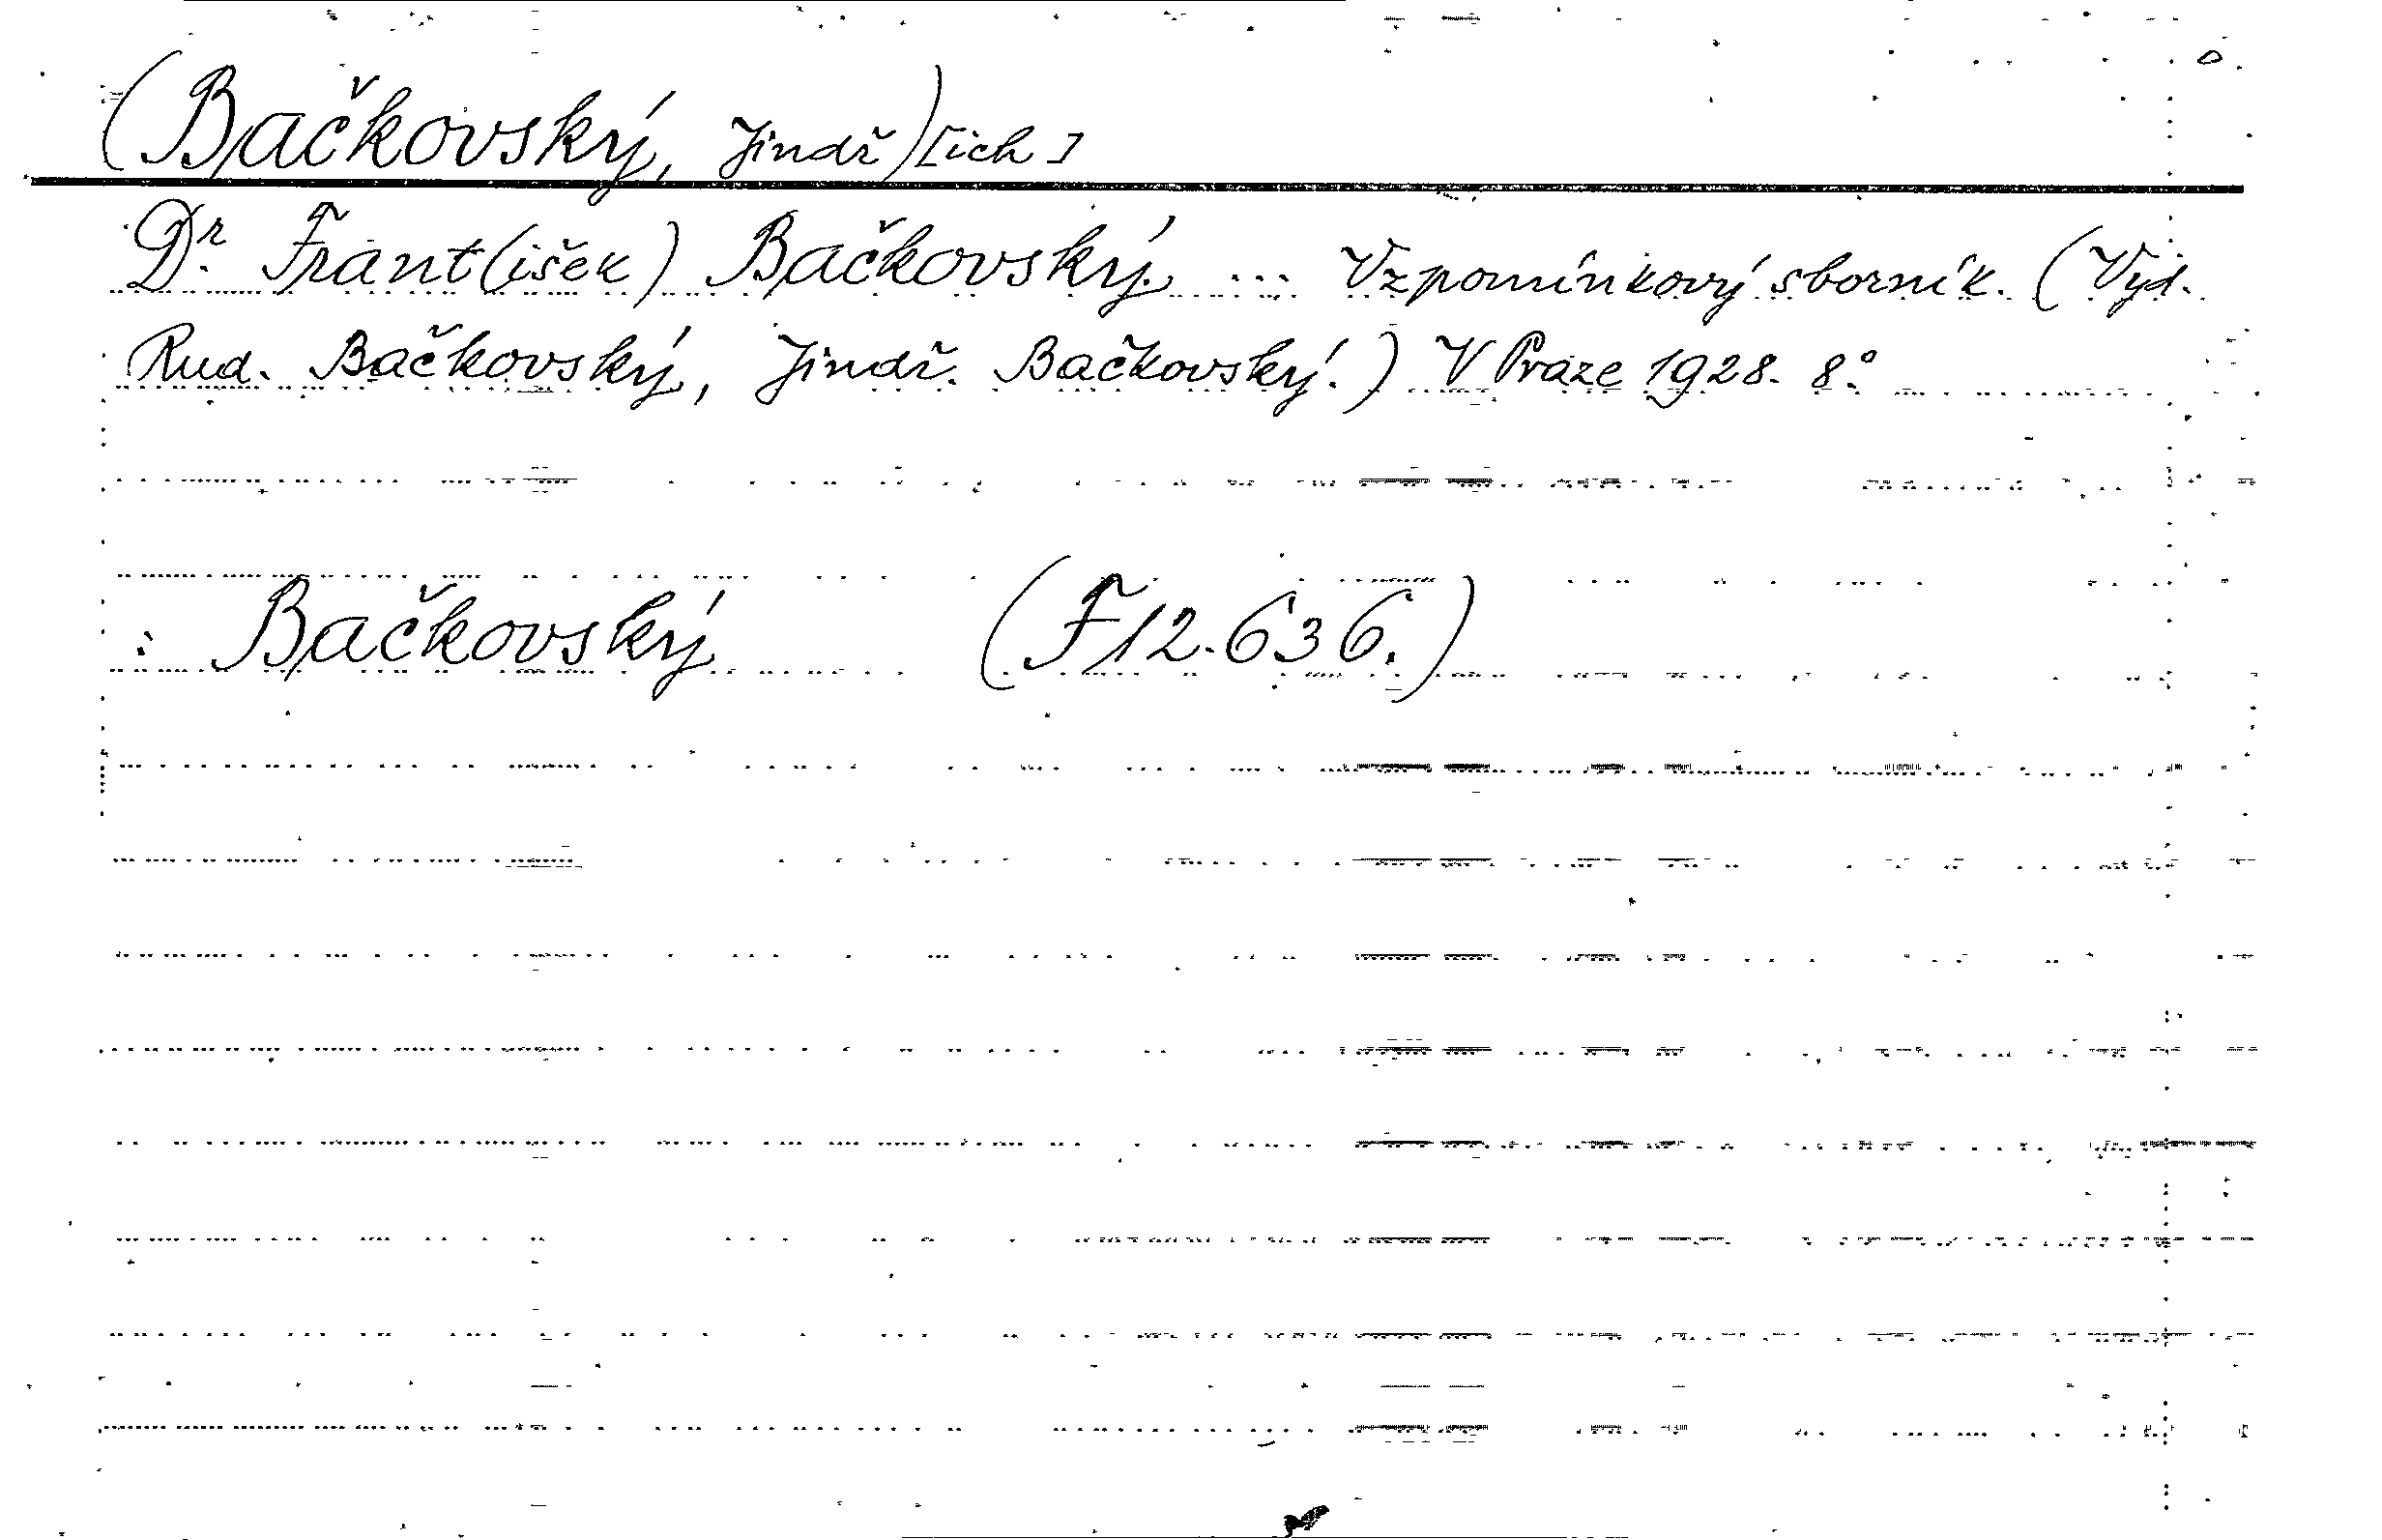 (Bačkovský, Jindř)[ich]
Dr. Frant(išek) Bačkovský ... Vzpomínkový sborník. (Vyd.
Rud. Bačkovský, Jindř. Bačkovský.) V Praze 1928. 8°
: Bačkovský (F 12.636.)